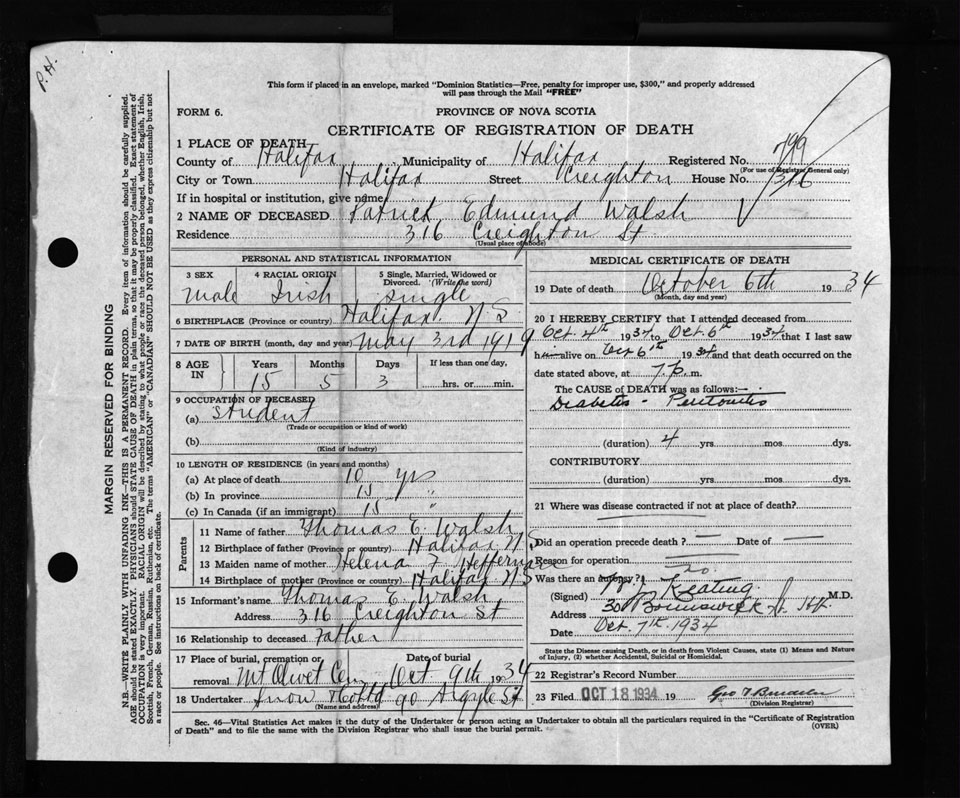 P.H.
This form if placed in an envelope, marked "Dominion Statistics—Free, penalty for improper use, $300," and properly addressed
will pass through the Mail "FREE"
FORM 6.
PROVINCE OF NOVA SCOTIA
CERTIFICATE OF REGISTRATION OF DEATH
1 PLACE OF DEATH
County of Halifax Municipality of Halifax Registered No. 799
(For use of Registrar General only)
City or Town Halifax Street Creighton House No. 316
If in hospital or institution, give name
2 NAME OF DECEASED Patrick Edmund Walsh
Residence 316 Creighton St
(Usual place of abode)
PERSONAL AND STATISTICAL INFORMATION
3 SEX 4 RACIAL ORIGIN 5 Single, Married, Widowed or Divorced. (Write the word)
Male Irish single
6 BIRTHPLACE (Province or country) Halifax N.S.
7 DATE OF BIRTH (month, day and year) May 3rd 1919
8 AGE IN Years Months Days If less than one day,
15 5 3 hrs. or min.
9 OCCUPATION OF DECEASED
(a) Student
(Trade or occupation or kind of work)
(b)
(Kind of industry)
10 LENGTH OF RESIDENCE (in years and months)
(a) At place of death 10 yrs
(b) In province 15 "
(c) In Canada (if an immigrant) 15 "
Parents
11 Name of father Thomas E. Walsh
12 Birthplace of father (Province or country) Halifax N.S
13 Maiden name of mother Helena F Heffernan
14 Birthplace of mother (Province or country) Halifax N.S
15 Informant's name Thomas E. Walsh
Address 316 Creighton St
16 Relationship to deceased Father
17 Place of burial, cremation or removal Mt Olivet Cem Date of burial Oct 9th 1934
18 Undertaker Snow & Co Ltd 90 Argyle St
(Name and address)
MEDICAL CERTIFICATE OF DEATH
19 Date of death October 6th 1934
(Month, day and year)
20 I HEREBY CERTIFY that I attended deceased from
Oct. 4th 1934 to Oct. 6th 1934 that I last saw
him alive on Oct 6th 1934 and that death occurred on the
date stated above, at 7.p. m.
The CAUSE OF DEATH was as follows:—
Diabetis - Peritonitis
(duration) 4 yrs mos dys.
CONTRIBUTORY
(duration) yrs mos dys.
21 Where was disease contracted if not at place of death?
Did an operation precede death? — Date of —
Reason for operation
Was there an autopsy? no.
(Signed) Keating M.D.
Address 30 Brunswick St. Hfx
Date Oct. 7th. 1934
State the Disease causing Death, or in death from Violent Causes, state (1) Means and Nature
of Injury, (2) whether Accidental, Suicidal or Homicidal.
22 Registrar's Record Number
23 Filed OCT 18 1934 19 Geo
(Division Registrar)
Sec. 46—Vital Statistics Act makes it the duty of the Undertaker or person acting as Undertaker to obtain all the particulars required in the "Certificate of Registration
of Death" and to file the same with the Division Registrar who shall issue the burial permit.
(OVER)
MARGIN RESERVED FOR BINDING
N.B.—WRITE PLAINLY WITH UNFADING INK—THIS IS A PERMANENT RECORD. Every item of information should be carefully supplied.
AGE should be stated EXACTLY. PHYSICIANS should STATE CAUSE OF DEATH in plain terms, so that it may be properly classified. Exact statement of
OCCUPATION is very important. RACIAL ORIGIN will be described by stating to what people or race the deceased person belonged, whether English, Irish,
Scottish, French, German, Russian, Ruthenian, etc. The terms "AMERICAN" or "CANADIAN" SHOULD NOT BE USED as they express citizenship but not
a race or people. See instructions on back of certificate.